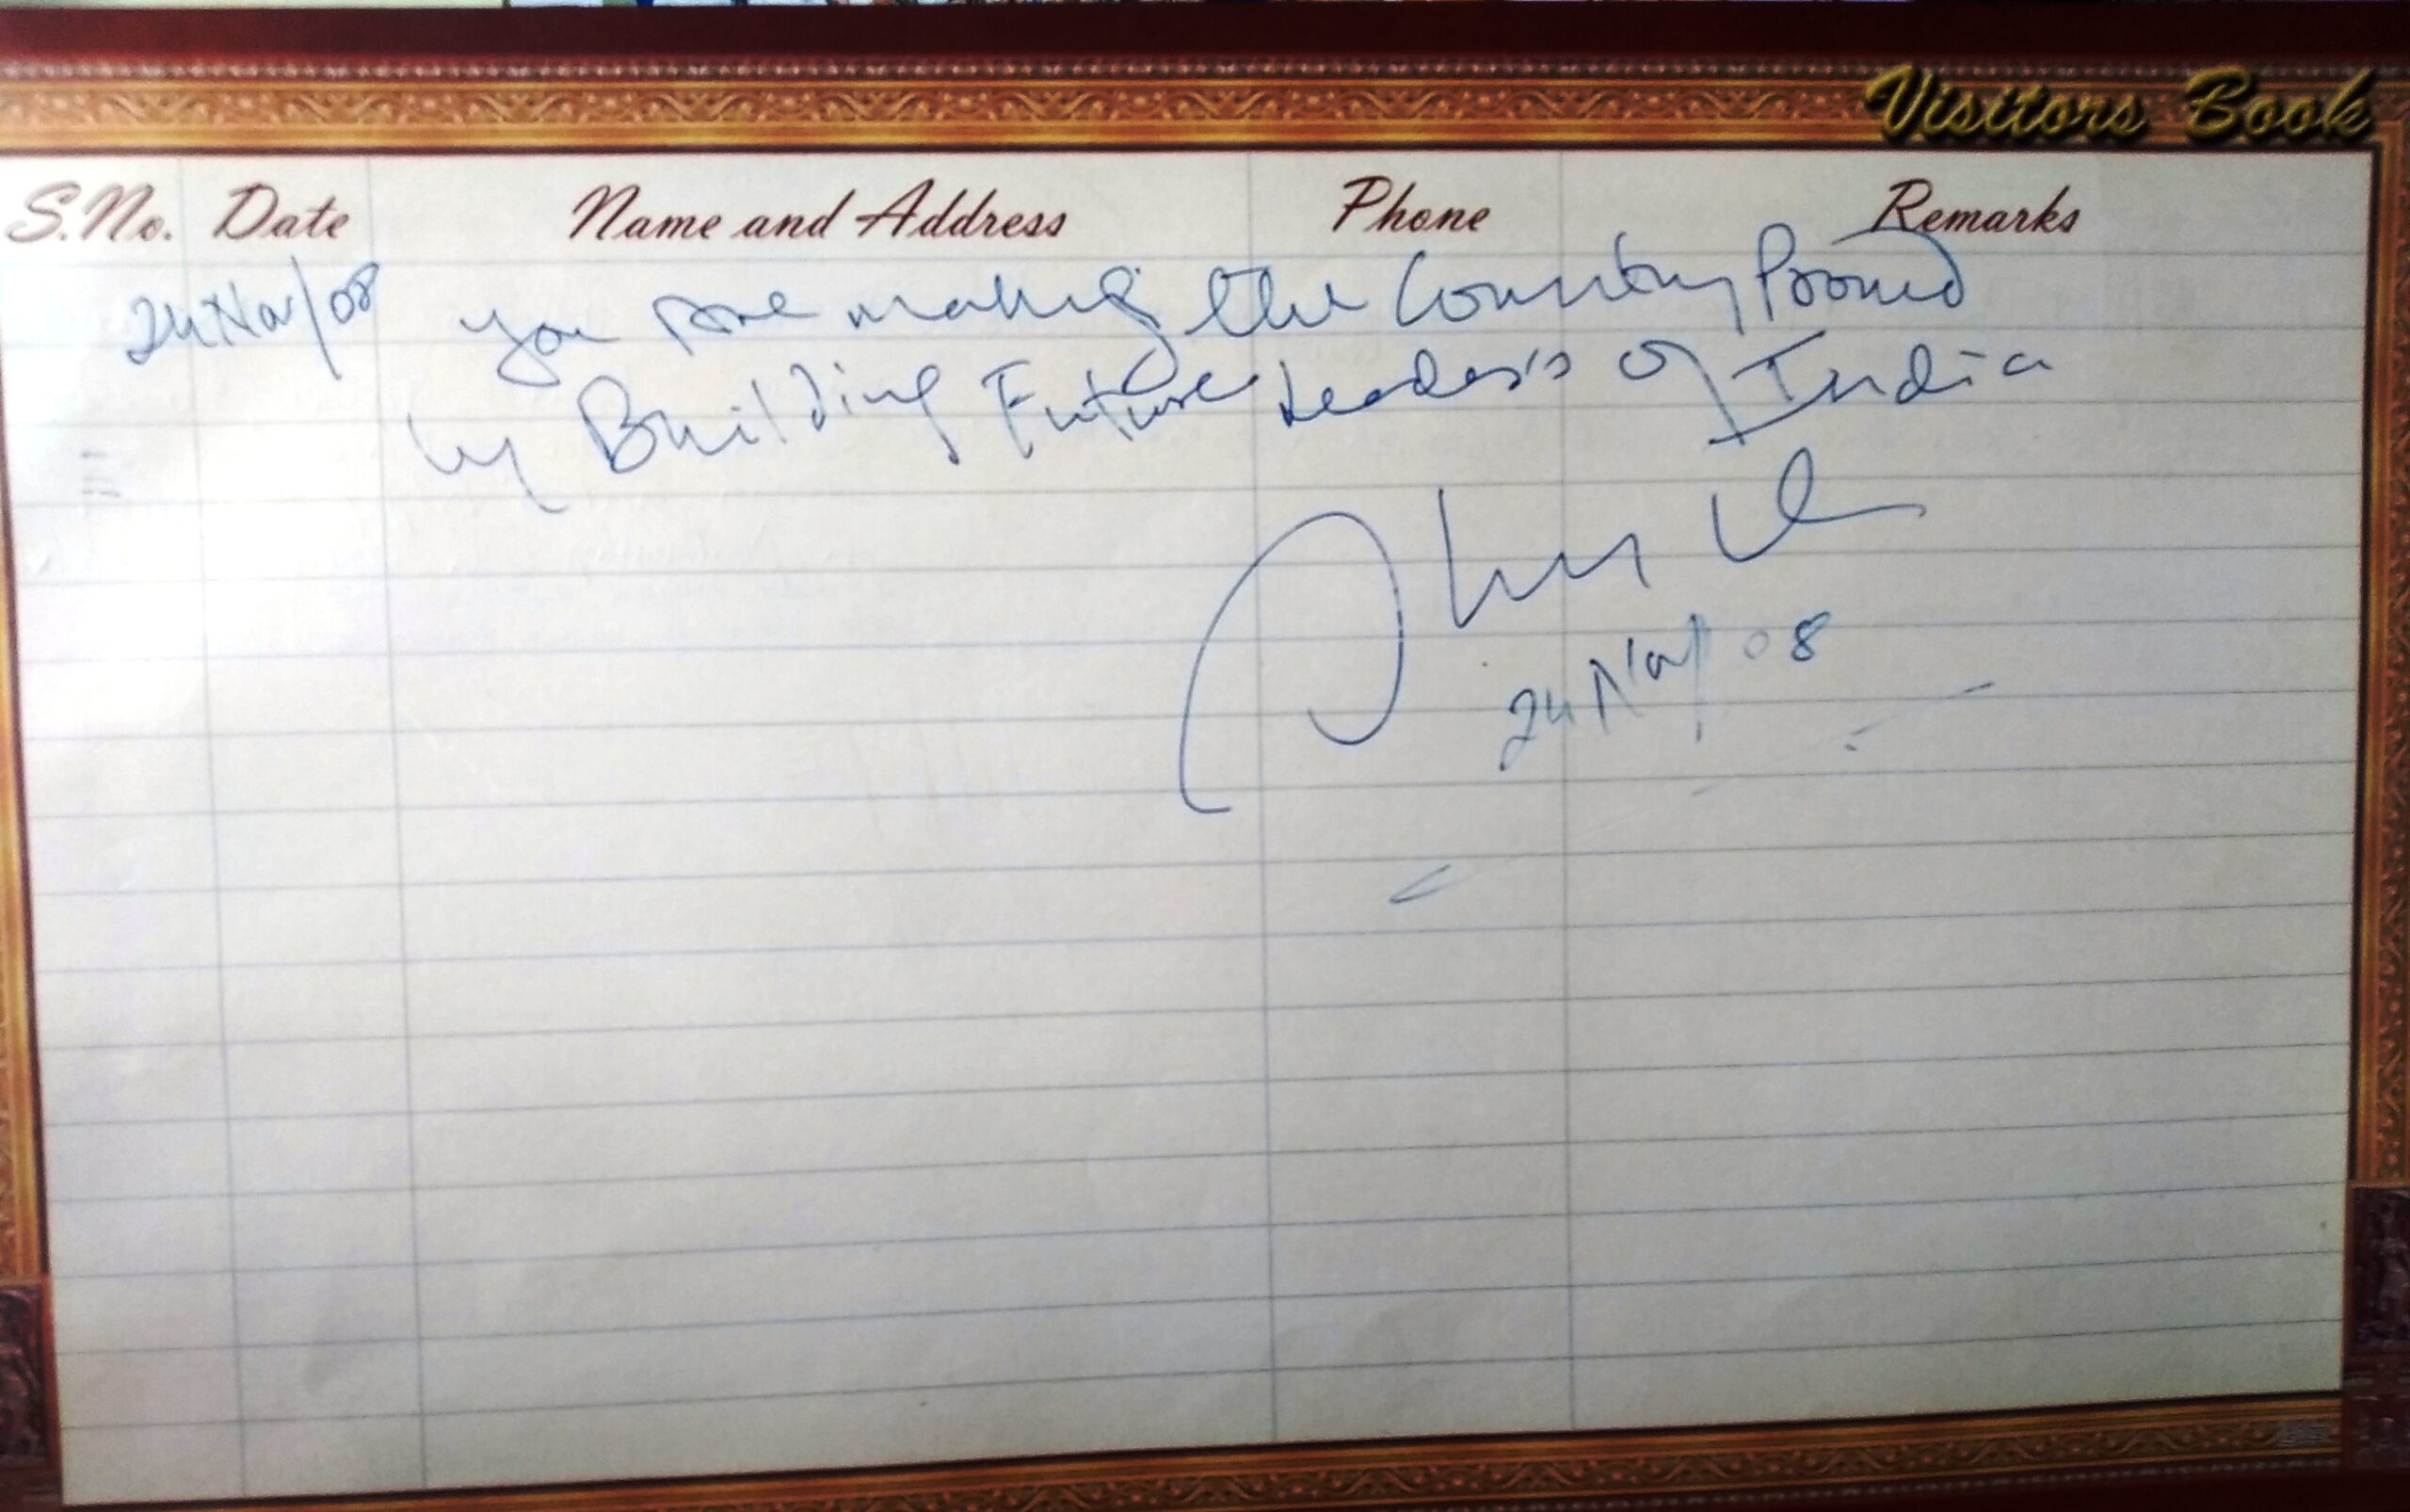 Visitors Book
S.No. Date Name and Address Phone Remarks
24 Nov/08 you are making the Country Proud
by Building Future Leaders of India
24 Nov/ 08